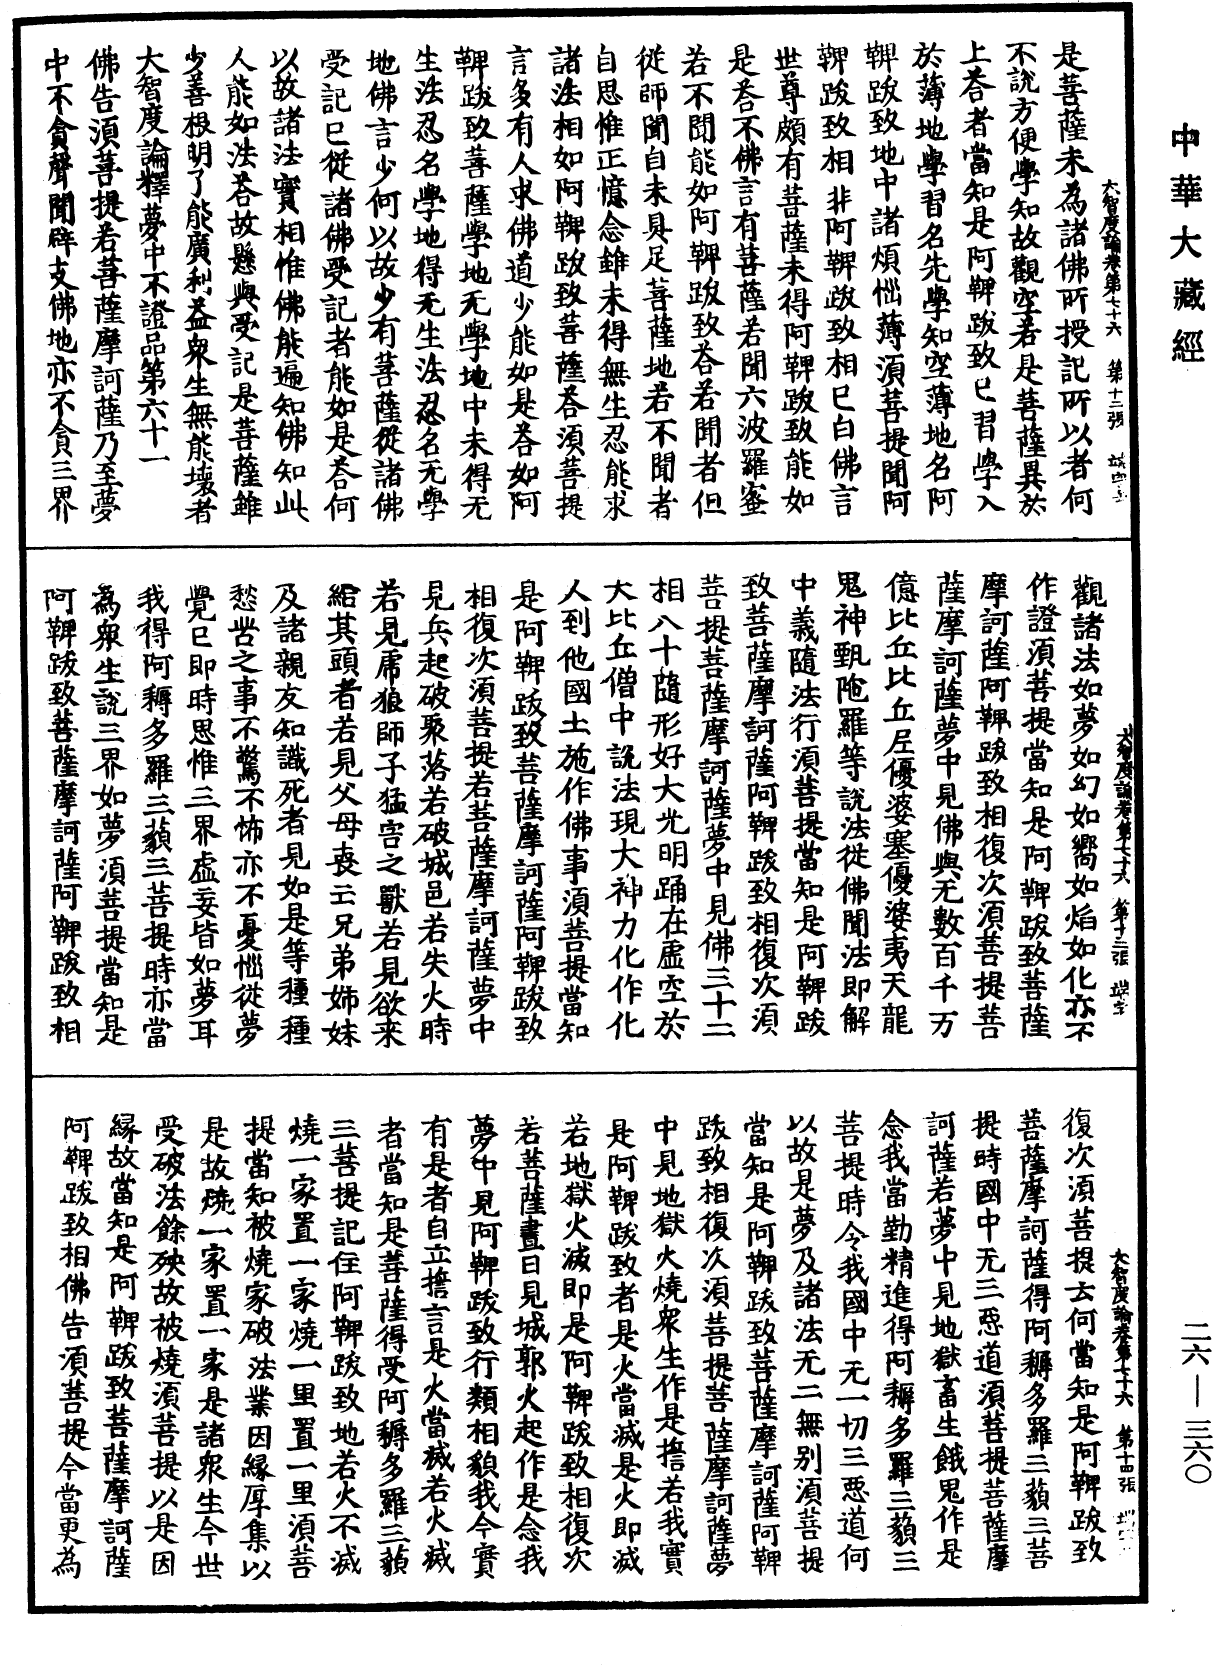 中華大藏經
大智度論卷第七十六　第十二張
是菩薩未為諸佛所授記所以者何
不說方便學知故觀空若是菩薩異於
上荅者當知是阿鞞跋致已習學入
於薄地學習名先學知空薄地名阿
鞞跋致地中諸煩惱薄須菩提聞阿
鞞跋致相非阿鞞跋致相已白佛言
世尊頗有菩薩未得阿鞞跋致能如
是荅不佛言有菩薩若聞六波羅蜜
若不聞能如阿鞞跋致荅若聞者但
從師聞自未具足菩薩地若不聞者
自思惟正憶念雖未得無生忍能求
諸法相如阿鞞跋致菩薩荅須菩提
言多有人求佛道少能如是荅如阿
鞞跋致菩薩學地无學地中未得无
生法忍名學地得无生法忍名无學
地佛言少何以故少有菩薩從諸佛
受記已從諸佛受記者能如是荅何
以故諸法實相惟佛能遍知佛知此
人能如法荅故懸與受記是菩薩雖
少善根明了能廣利益眾生無能壞者
大智度論釋夢中不證品第六十一
佛告須菩提若菩薩摩訶薩乃至夢
中不貪聲聞辟支佛地亦不貪三界
大智度論卷第七十六　第十三張
觀諸法如夢如幻如嚮如焰如化亦不
作證須菩提當知是阿鞞跋致菩薩
摩訶薩阿鞞跋致相復次須菩提菩
薩摩訶薩夢中見佛與无數百千万
億比丘比丘尼優婆塞優婆夷天龍
鬼神甄陁羅等說法從佛聞法即解
中義隨法行須菩提當知是阿鞞跋
致菩薩摩訶薩阿鞞跋致相復次須
菩提菩薩摩訶薩夢中見佛三十二
相八十隨形好大光明踊在虛空於
大比丘僧中說法現大神力化作化
人到他國土施作佛事須菩提當知
是阿鞞跋致菩薩摩訶薩阿鞞跋致
相復次須菩提若菩薩摩訶薩夢中
見兵起破聚落若破城邑若失火時
若見虎狼師子猛害之獸若見欲来
給其頭者若見父母喪亡兄弟姊妹
及諸親友知識死者見如是等種種
愁苦之事不驚不怖亦不憂惱從夢
覺已即時思惟三界虛妄皆如夢耳
我得阿耨多羅三藐三菩提時亦當
為眾生說三界如夢須菩提當知是
阿鞞跋致菩薩摩訶薩阿鞞跋致相
大智度論卷第七十六　第十四張
復次須菩提云何當知是阿鞞跋致
菩薩摩訶薩得阿耨多羅三藐三菩
提時國中无三惡道須菩提菩薩摩
訶薩若夢中見地獄畜生餓鬼作是
念我當勤精進得阿耨多羅三藐三
菩提時令我國中无一切三惡道何
以故是夢及諸法无二無別須菩提
當知是阿鞞跋致菩薩摩訶薩阿鞞
跋致相復次須菩提菩薩摩訶薩夢
中見地獄火燒眾生作是誓若我實
是阿鞞跋致者是火當滅是火即滅
若地獄火滅即是阿鞞跋致相復次
若菩薩晝日見城郭火起作是念我
夢中見阿鞞跋致行類相貌我今實
有是者自立誓言是火當滅若火滅
者當知是菩薩得受阿耨多羅三藐
三菩提記住阿鞞跋致地若火不滅
燒一家置一家燒一里置一里須菩
提當知被燒家破法業因緣厚集以
是故燒一家置一家是諸眾生今世
受破法餘殃故被燒須菩提以是因
緣故當知是阿鞞跋致菩薩摩訶薩
阿鞞跋致相佛告須菩提今當更為
二六—三六〇